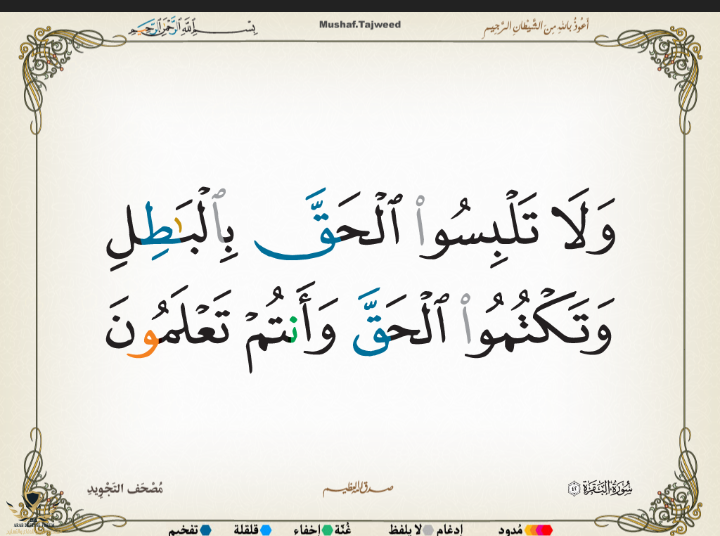 أعوذ بالله من الشيطان الرجيم
Mushaf.Tajweed
بسم الله الرحمن الرحيم
وَلَا تَلْبِسُوا۟ ٱلْحَقَّ بِٱلْبَـٰطِلِ
وَتَكْتُمُوا۟ ٱلْحَقَّ وَأَنتُمْ تَعْلَمُونَ
سُورَةُ البَقَرَة ٤٢
صدق الله العظيم
مُصْحَف التَجْوِيد
مُدود
إدغام لا يلفظ
غُنّة إخفاء
قلقلة
تفخيم